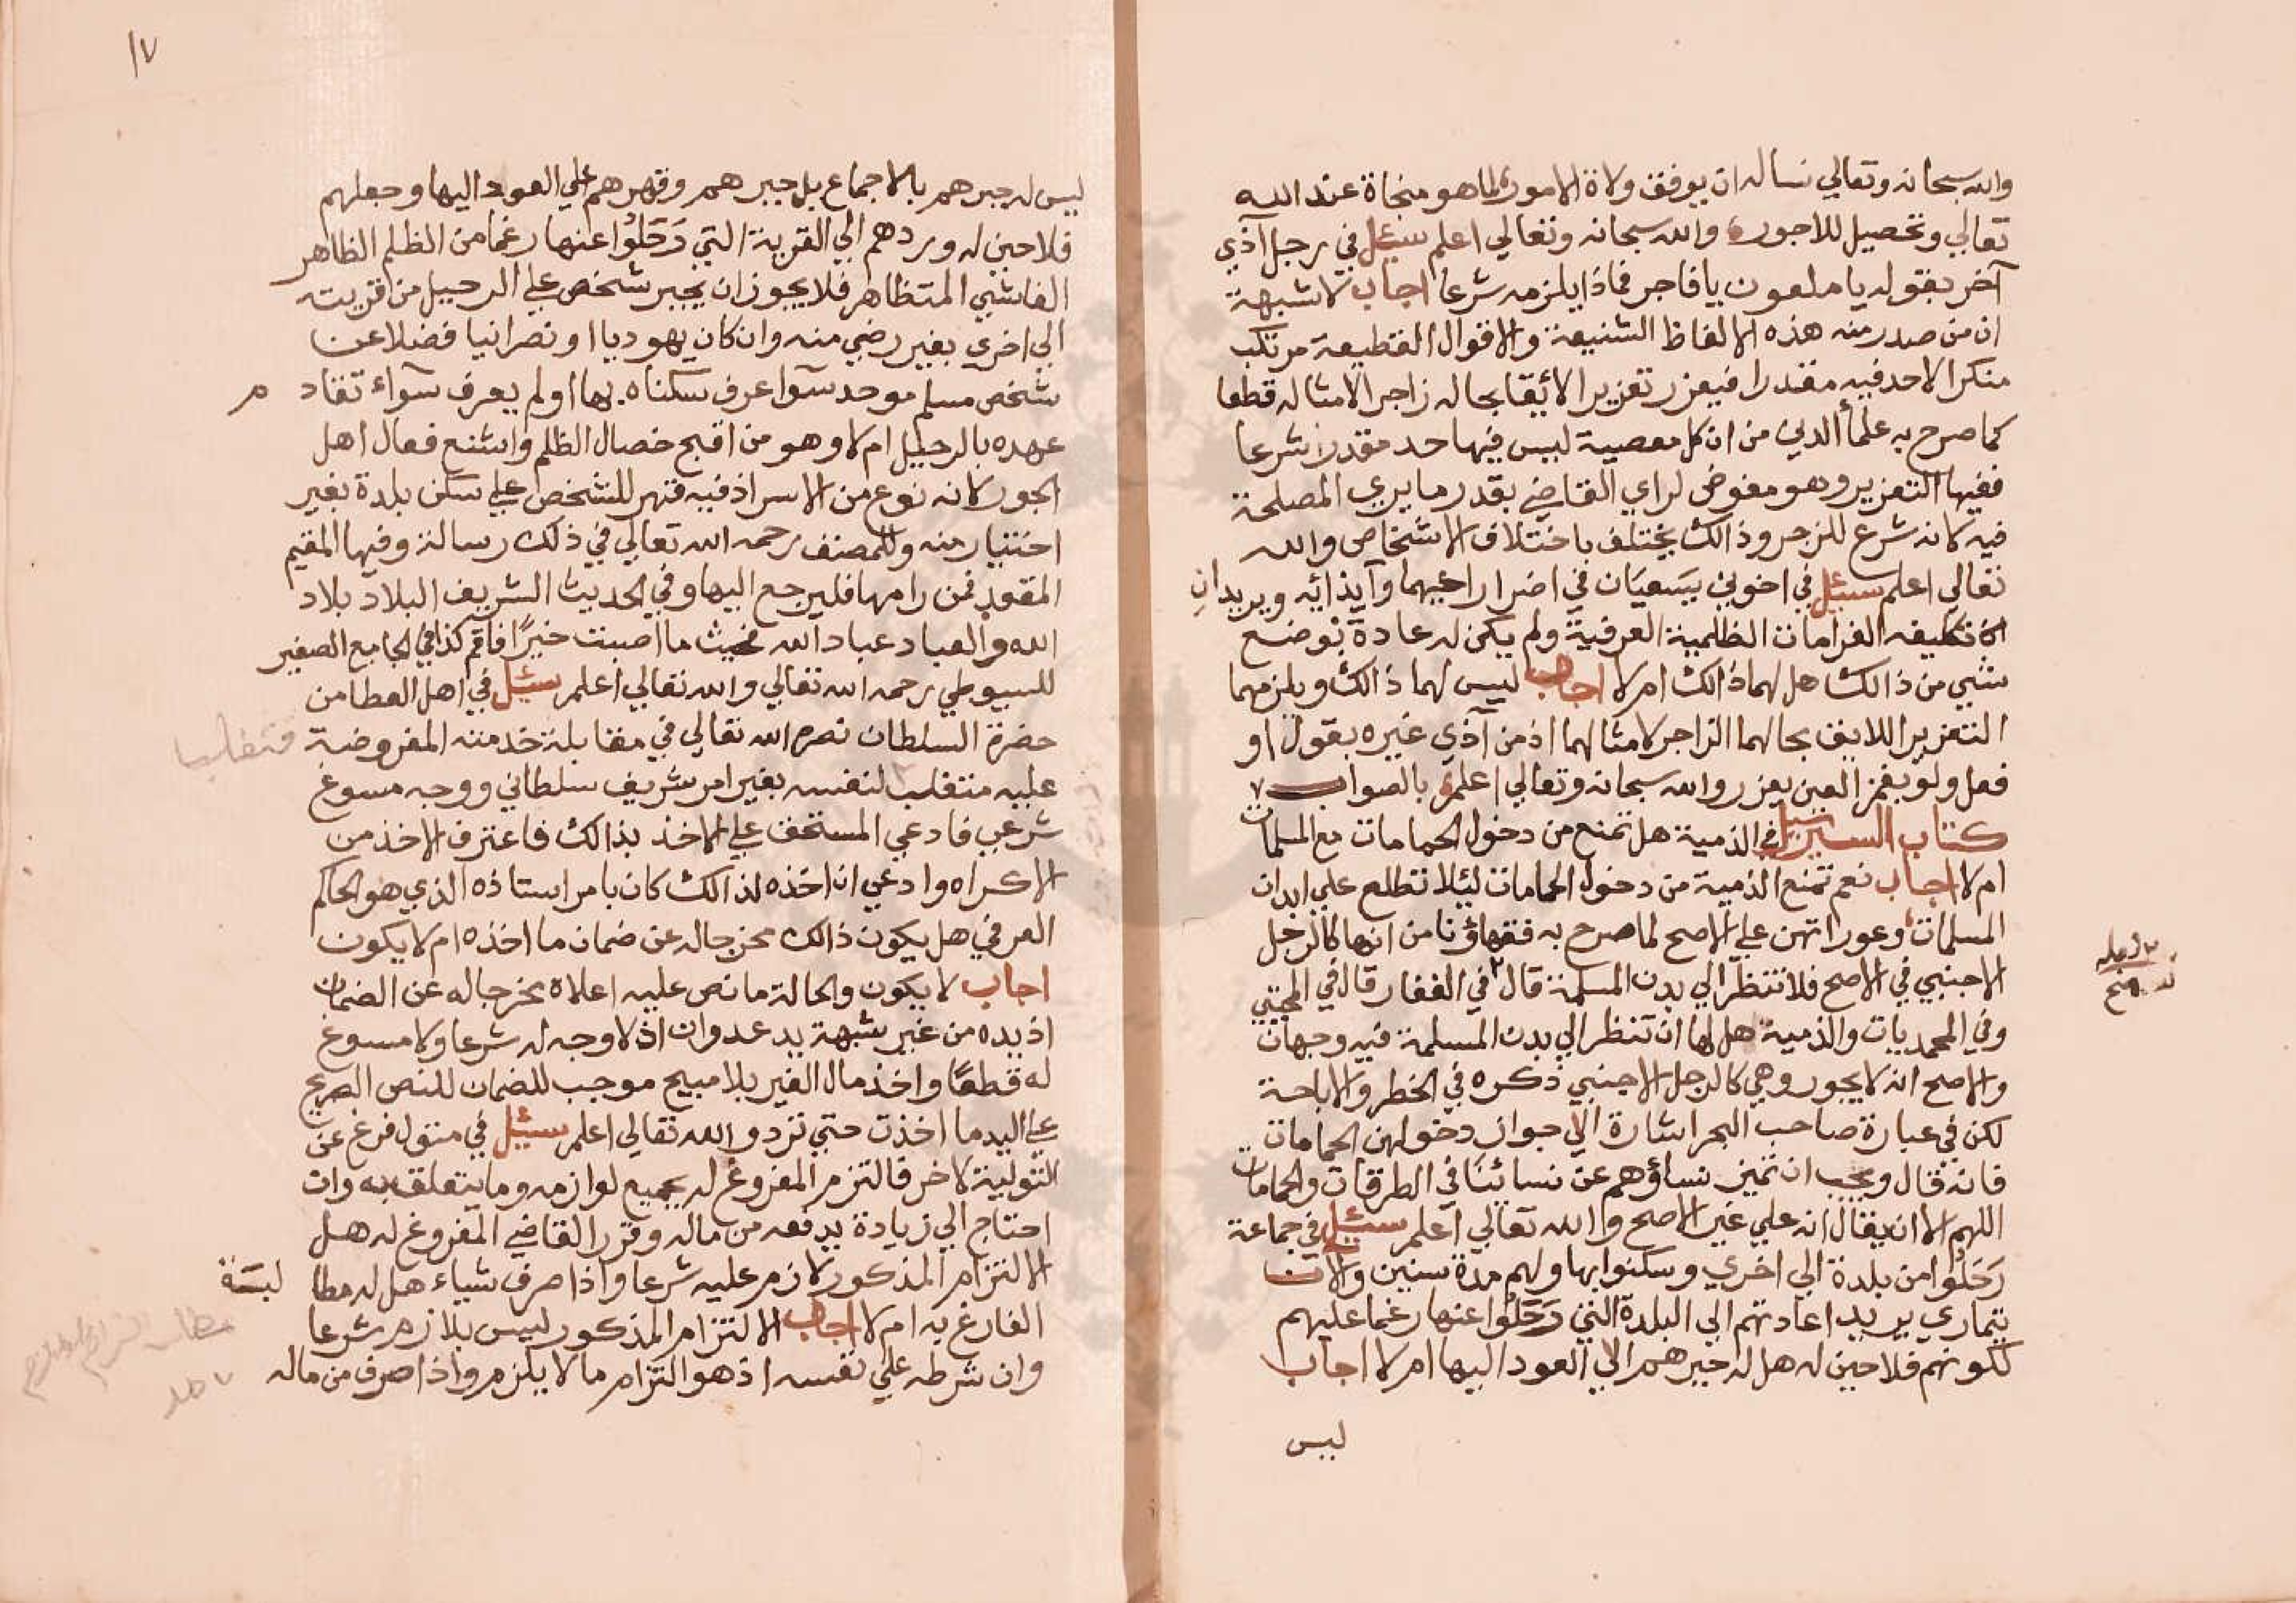 والله سبحانه وتعالي نساله ان يوفق ولاة الامور لما هو منجاة عند الله
تعالي وتحصيل للاجور والله سبحانه وتعالي اعلم سئل في رجل آذي
آخر بقوله يا ملعون يا فاجر فماذا يلزمه شرعا اجاب لا شبهة
ان من صدر منه هذه الالفاظ الشنيعة والاقوال الفظيعة مرتكب
منكرا لاحد فيه مقدرا فيعزر تعزيرا لائقا بحاله زاجرا لامثاله قطعا
كما صرح به علمأ الدين من ان كل معصية ليس فيها حد مقدر شرعا
ففيها التعزير وهو مفوض لراي القاضي بقدر ما يري المصلحة
فيه لانه شرع للزجر وذالك يختلف باختلاف الاشخاص والله
تعالي اعلم سئل في اخوين يسعيان في اضرار اخيهما وآيذائه ويريدان
تكليفه الغرامات الظلمية العرفية ولم يكن له عادة بوضع
شيي من ذالك هل لهما ذالك ام لا اجاب ليس لهما ذالك ويلزمهما
التعزير اللايق بحالهما الزاجر لامثالهما اذ من آذي غيره بقول او
فعل ولو بغمز العين يعزر والله سبحانه وتعالي اعلم بالصواب
كتاب السير سئل في الذمية هل تمنع من دخول الحمامات مع المسلمات
ام لا اجاب نعم تمنع الذمية من دخول الحمامات لئلا تطلع علي ابدان
المسلمات وعوراتهن علي الاصح لما صرح به فقهاؤنا من انها كالرجل
الاجنبي في الاصح فلا تنظر الي بدن المسلمة قال في الغفار قال في المجتبي
وفي المحمديات والذمية هل لها ان تنظر الي بدن المسلمة فيه وجهان
والاصح انه لا يجوز وهي كالرجل الاجنبي ذكره في الخطر والاباحة
لكن في عبارة صاحب البحر اشارة الي جواز دخولهن الحمامات
فانه قال ويجب ان تميز نساؤهم عن نسائنا في الطرقات والحمامات
اللهم الا ان يقال انه علي غير الاصح والله تعالي اعلم سئل في جماعة
رَحَلُوا من بلدة الي اخري وسكنوا بها ولهم مدة سنين والان
تيماري يريد اعادتهم الي البلدة التي رَحَلُوا عنها رغما عليهم
لكونهم فلاحين له هل له جبرهم الي العود اليها ام لا اجاب
ليس
١٧
ليس له جبرهم بالاجماع بل جبرهم وقهرهم علي العود اليها وجعلهم
فلاحين له وردهم الي القرية التي رَحَلُوا عنها رغما من الظلم الظاهر
الفاشي المتظاهر فلا يجوز ان يجبر شخص علي الرحيل من قريته
الي اخري بغير رضي منه وان كان يهوديا او نصرانيا فضلا عن
شخص مسلم موحد سوآ عرف سكناه بها او لم يعرف سوآء تقاد م
عهده بالرحيل ام لا وهو من اقبح خصال الظلم واشنع فعال اهل
الجور لانه نوع من الاسر اذ فيه قهر للشخص علي سكن بلدة بغير
اختيار منه وللمصنف رحمه الله تعالي في ذلك رسالة وفيها المقيم
المقعد فمن رامها فليرجع اليها وفي الحديث الشريف البلاد بلاد
الله والعباد عباد الله فحيث ما اصبت خيرًا فاقم كذا في الجامع الصغير
للسيوطي رحمه الله تعالي والله تعالي اعلم سئل في اهل العطا من
حضرة السلطان نصره الله تعالي في مقابلة خدمته المفروضة
عليه متغلب لنفسه بغير امر شريف سلطاني ووجه مسوغ
شرعي فادعي المستحق علي الاخذ بذالك فاعترف الاخذ من
الاكراه وادعي ان اخذه لذالك كان بامر استاذه الذي هو الحاكم
العرفي هل يكون ذالك مخرجا له عن ضمان ما اخذه ام لا يكون
اجاب لا يكون والحالة ما نص عليه اعلاه مخرجا له عن الضمان
اذ يده من غير شبهة يد عدوان اذ لا وجه له شرعا ولا مسوغ
له قطعًا واخذ مال الغير بلا مبيح موجب للضمان للنص الصريح
علي اليد ما اخذت حتي ترد والله تعالي اعلم سئل في متول فرغ عن
التولية لاخر فالتزم المفروغ له بجميع لوازمه وما يتعلق به وان
احتاج الي زيادة يدفعه من ماله وقرر القاضي المفروغ له هل
الالتزام المذكور لازم عليه شرعا واذا صرف شياء هل له مطا لبتة
الفارغ به ام لا اجاب الالتزام المذكور ليس بلازم شرعا
وان شرطه علي نفسه اذ هو التزام ما لا يلزم واذا صرف من ماله